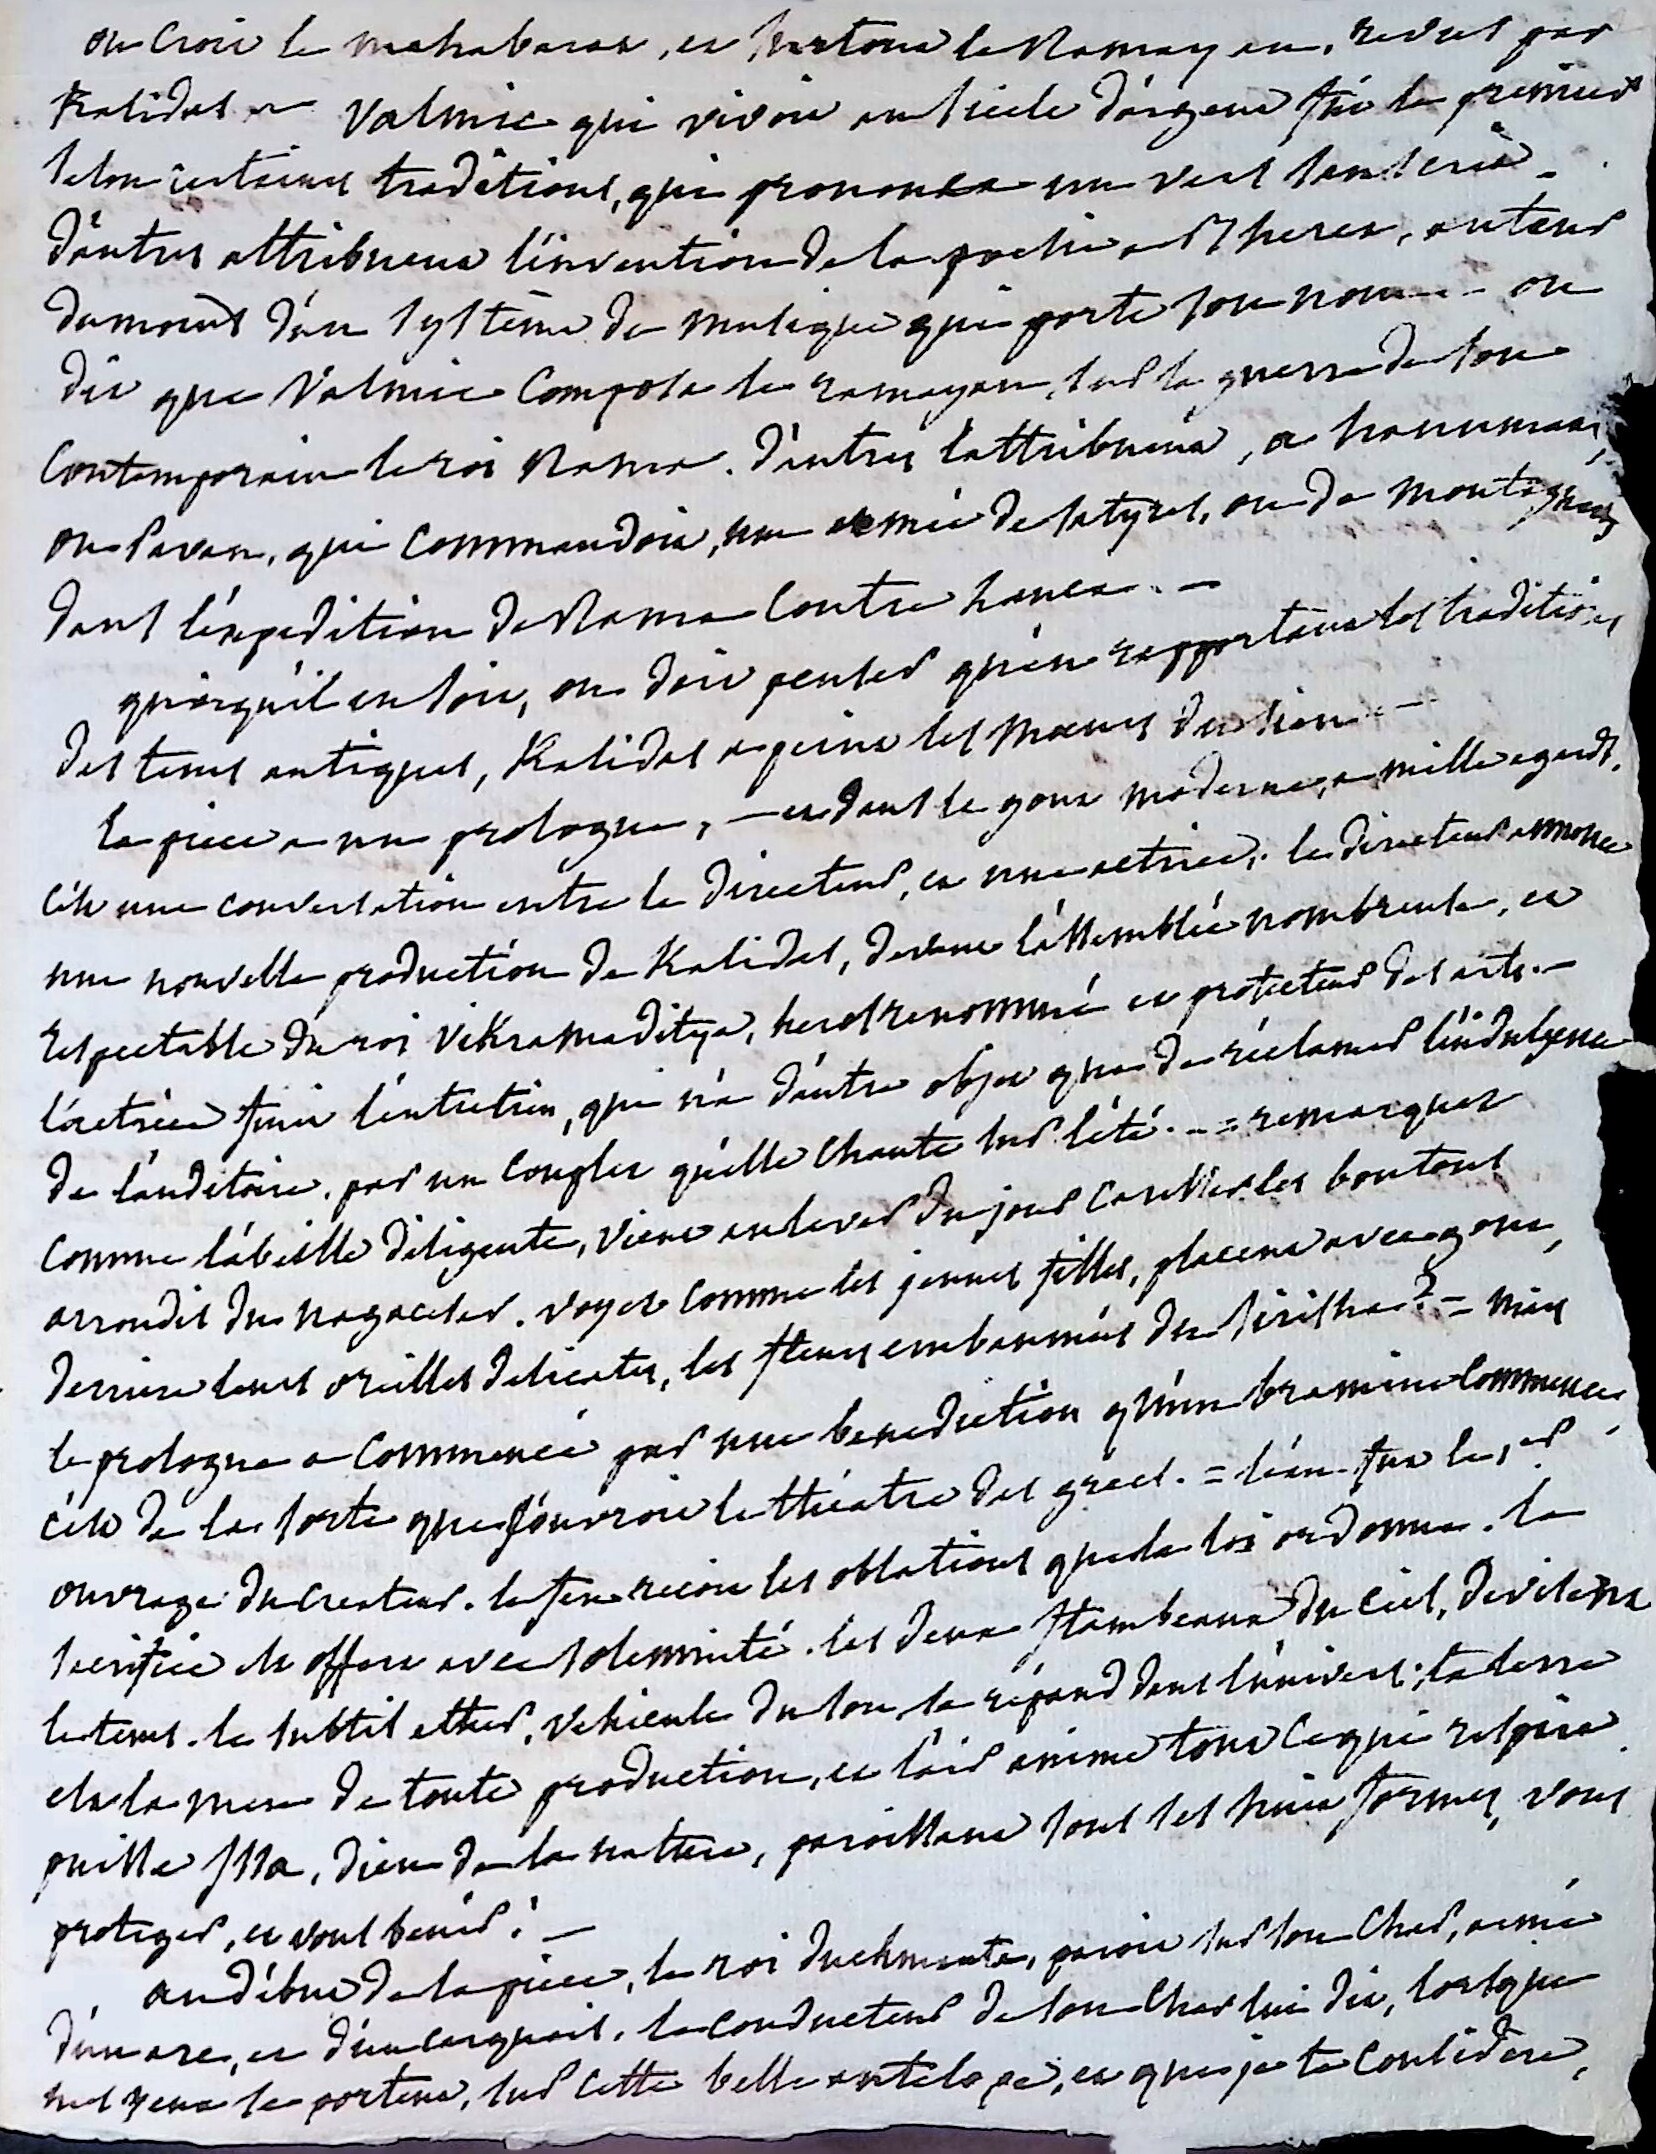 on croit le mahabarat, et surtout le Ramayan, revus par
Kalidas – Valmic qui vivoit au siecle d'argent fut le premier
selon certaines traditions, qui prononca un vers sanscrit –
d'autres attribuent l'invention de la poesie a Sheres, auteur
du moins d'un systême de musique qui porte son nom – on
dit que Valmic composa le ramayan, sur la guerre de son
contemporain le roi Rama. d'autres l'attribuent, a hanumaan,
ou Pavan, qui commandoit, une armée de satyres, ou de montagnards
dans l'expedition de Rama contre Lanca. –
quoiqu'il en soit, on doit penser qu'en rapportant les traditions
des tems antiques, Kalidas a peint les moeurs du sien –
la piece a un prologue, – et dans le gout moderne, a mille egards.
c'est une conversation entre le directeur, et une actrice. le directeur annonce
une nouvelle production de Kalidas, devant l'assemblée nombreuse, et
respectable du roi Vikramaditya, heros renommé et protecteur des arts. –
l'actrice finit l'entretien, qui n'a d'autre objet que de réclamer l'indulgence
de l'auditoire, par un couplet qu'elle chante sur l'été. – = remarquez
comme l'abeille diligente, vient au lever du jour caresser les boutons
arrondis du nagacesar. voyez comme les jeunes filles, placent avec gout,
derriere leurs oreilles delicates, les fleurs embaumées du sirisha? = mais
le prologue a commencé par une benediction qu'un bramine commence
c'est de la sorte que s'ouvroit le théatre des grecs. = l'eau fut le 1er
ouvrage du createur. le feu recoit les oblations que la loi ordonne. le
sacrifice est offert avec solemnité. les deux flambeaux du ciel, divisent
le tems. le subtil ether, vehicule du son, se répand dans l'univers; la terre
est la mere de toute production, et l'air anime tout ce qui respire
puisse Issa, dieu de la nature, paroissant sous ses huit formes, vous
proteger, et vous benir! –
au début de la piece, le roi duchmanta, paroit sur son char, armé
d'un arc, et d'un carquois. le conducteur de son char lui dit, lorsque
mes yeux se portent, sur cette belle antelope, et que je te considere,